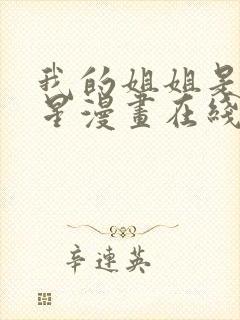 我的姐姐是
星漫畫在綫
辛連英